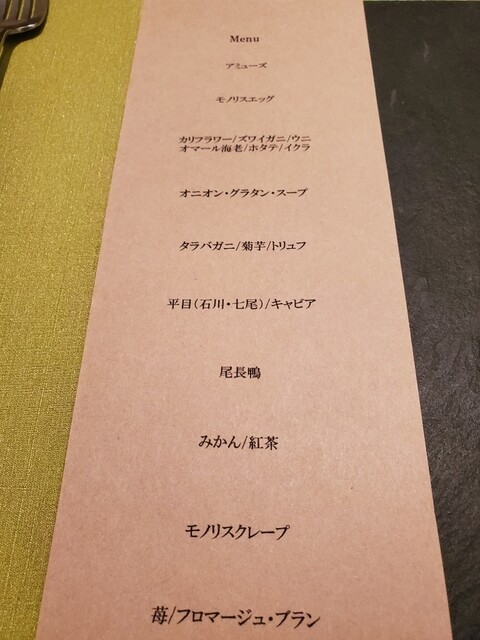 Menu
アミューズ
モノリスエッグ
カリフラワー/ズワイガニ/ウニ
オマール海老/ホタテ/イクラ
オニオン・グラタン・スープ
タラバガニ/菊芋/トリュフ
平目(石川・七尾)/キャビア
尾長鴨
みかん/紅茶
モノリスクレープ
苺/フロマージュ・ブラン